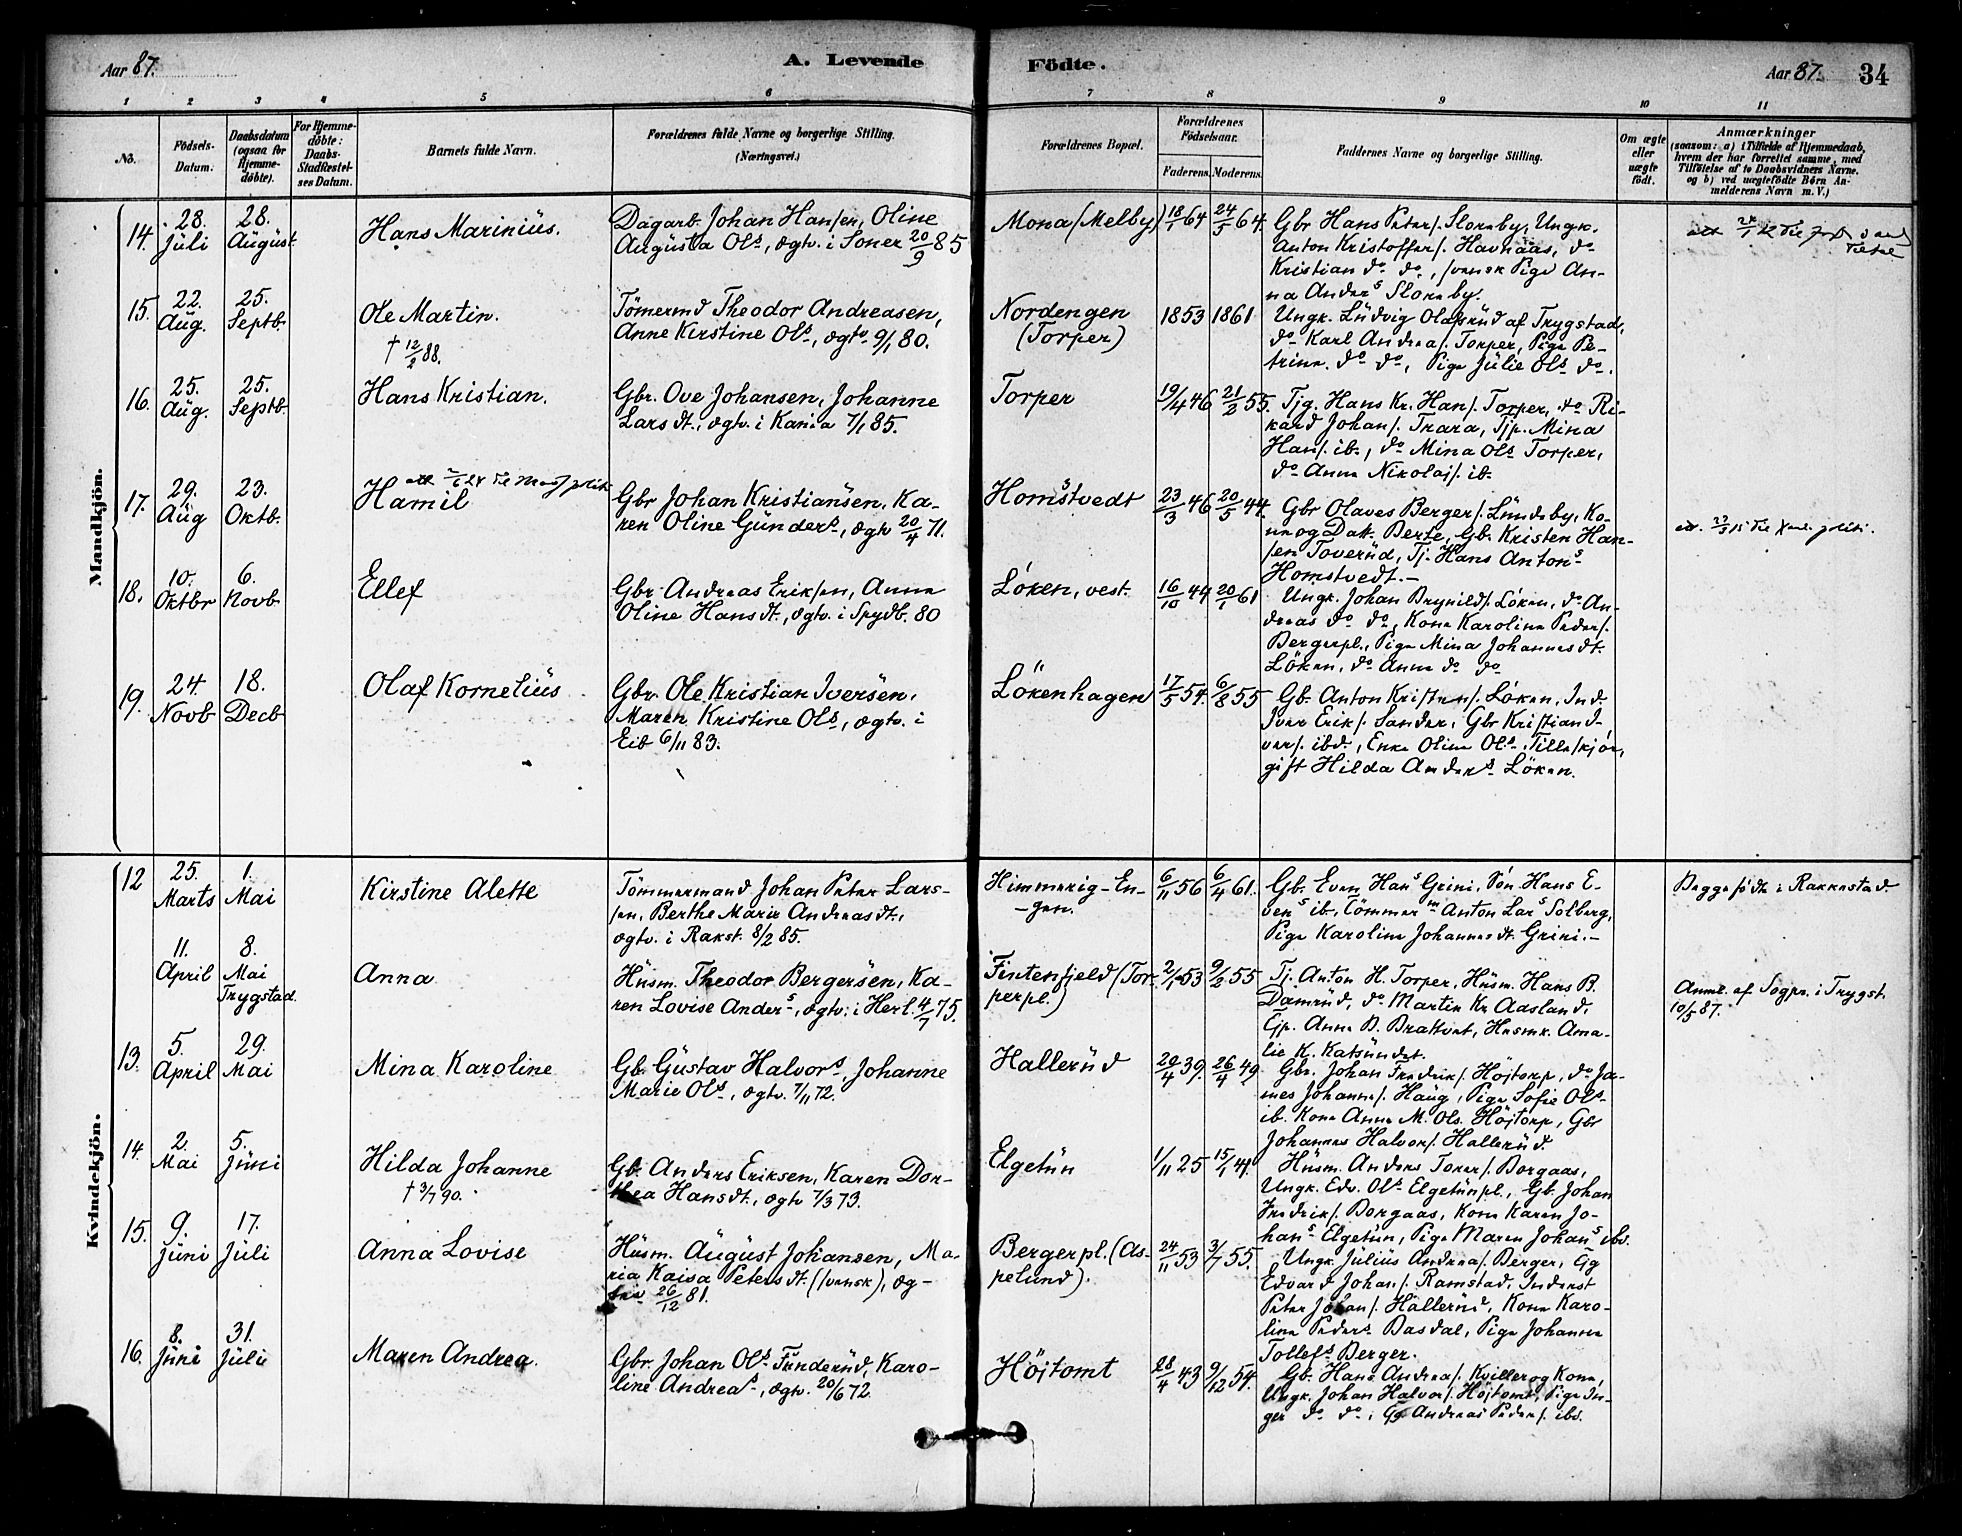 Aar 87.
A. Levende
Födte.
Aar 87.
34
1 2 3 4 5 6 7 8 9 10 11
No.
Födsels-Datum.
Daabsdatum (ogsaa for Hjemmedöbte).
For Hjemmedöbte: Daabs-Stadfæstelses Datum.
Barnets fulde Navn.
Forældrenes fulde Navne og borgerlige Stilling. (Næringsvei.)
Forældrenes Bopæl.
Forældrenes Födselsaar.
Faderens. Moderens.
Faddernes Navne og borgerlige Stilling.
Om ægte eller uægte födt.
Anmærkninger
(saasom: a) i Tilfælde af Hjemmedaab,
hvem der har forrettet samme, med
Tilföielse af to Daabsvidners Navne.
og b) ved uægtefödte Börn An-
melderens Navn m.V.)
Mandkjön.
14. 28. Juli
28. August
Hans Marinius.
Dagarb. Johan Hansen, Oline
Augusta Ols., ægtv. i Soner 20/9 85
Mona (Melby)
18/1 64 24/5 64.
Gbr Hans Peters. Sloreby, Ungk.
Anton Kristoffers. Havnaas, do
Kristian do do, svensk Pige An-
na Anders Sloreby.
15. 22. Aug.
25. Septb.
Ole Martin.
† 12/2 88.
Tömermd Theodor Andreasen,
Anne Kirstine Ols., ægtv. 9/1 80.
Nordengen
(Torper)
1853 1861
Ungk. Ludvig Olafsrud af Trygstad,
do Karl Andreas. Torper, Pige Pe-
trine do do, Pige Julie Ols do.
16. 25. Aug.
25. Septb.
Hans Kristian.
Gbr. Ove Johansen, Johanne
Larsdt., ægtv. i Rania 7/1 85.
Torper
19/4 46 21/2 55.
Tjg. Hans Kr. Hans. Torper, do Ri-
kard Johans. Trara, Tjp. Mina
Hans. ib., do Mina Ols Torper,
do Anna Nikolajs. ib.
17. 29. Aug
23. Oktb.
Hamil
Gbr Johan Kristiansen, Ka-
ren Oline Gunders., ægtv 20/4 71.
Homstvedt
23/3 46 20/5 44.
Gbr Olaves Bergers. Lundeby, Ko-
ne og Datt. Berte, Gb. Kristen Han-
sen Toverud, Tj. Hans Antons
Homstvedt.-
18. 10. Oktbr
6. Novb.
Ellef
Gbr Andreas Eriksen, Anne
Oline Hansdt., ægtv. i Spydb. 80
Löken, vest.
16/10 44 20/1 61
Ungk. Johan Brynilds. Löken, do An-
dreas do do, Kone Karoline Peders.
Bergerpl., Pige Mina Johannesdt.
Löken, do Anne do do
19. 24. Novb
18. Decb
Olaf Kornelius
Gbr. Ole Kristian Iversen,
Maren Kristine Ols., ægtv. i
Eib 6/11 83.
Lökenhagen
17/5 54. 6/8 55
Gb. Anton Kristens. Löken, Ind.
Iver Eriks. Sander, Gbr Kristian I-
vers. ibd., Enke Oline Ols. Tilleskjör,
gift Hilda Anders. Löken.
Kvindekjön.
12 25. Marts
1. Mai
Kirstine Alette
Tömmermand Johan Peter Lars-
sen, Berthe Marie Andreasdt.,
ægtv. i Rakst. 8/2 85.
Himmerig-En-
-gen.
6/11 56 6/4 61.
Gb. Even Hans Grini, Sön Hans E-
vens ib, Tömmerm Anton Lars Solberg,
Pige Karoline Johannesdt Grini.-
Begge födte i Rakkestad
11. April
8. Mai
Trygstad
Anna
Husm. Theodor Bergersen, Ka-
ren Lovise Anders., ægtv. i Herl. 4/7 75.
Fintenfjeld (Tor-
perpl.)
2/1 53 9/2 55
Tj. Anton H. Torper, Husm. Hans B.
Damrud, do Martin Kr Aasland,
Tjp. Anne B. Brattvet, Husmk. Ama-
lie K. Katsundet.
Anml. af Sogpr. i Trygst.
10/5 87.
13. 5. April
29. Mai
Mina Karoline
Gb. Gustav Halvors. Johanne
Marie Ols., ægtv. 7/11 72.
Hallerud
20/4 39. 26/4 49
Gbr. Johan Fredriks. Höjtorp, do Jo-
mes Johannes. Haug, Pige Sofie Ols.
ib. Kone Anne M. Ols. Höjtorp, Gbr
Johannes Halvors. Hallerud.
14. 2. Mai
5. Juni
Hilda Johanne
† 3/7 90.
Gb. Anders Eriksen, Karen Dor-
thea Hansdt., ægtv 7/3 73.
Elgetun
1/11 25 15/1 41.
Husm. Anders Tores. Borgaas,
Ungk. Edv. Ols Elgetunpl., Gb. Johan
Fredriks. Borgaas, Kone Karen Jo-
hans Elgetun, Pige Maren Johans ibd.
15. 9. Juni
17. Juli
Anna Lovise
Husm. August Johansen, Ma-
ria Kaisa Petersdt. (svensk), æg-
tev 26/12 81.
Bergerpl. (As-
pelund).
24/11 53 3/7 55.
Ungk Julius Andreas. Berger, Gg
Edvard Johans. Ramstad, Inderst
Peter Johans. Hallerud, Kone Karo-
line Peders. Basdal, Pige Johanne
Tollefs Berger.
16. 8. Juni
31. Juli
Maren Andrea.
Gbr. Johan Ols. Funderud, Karo-
line Andreas., ægtv. 20/6 72.
Höjtomt
28/4 43 9/12 54.
Gb. Hans Andreas. Kviller og Kone,
Ungk. Johan Halvors. Höjtomt, Pige In-
ger do do, Gg Andreas Peders. ibd.